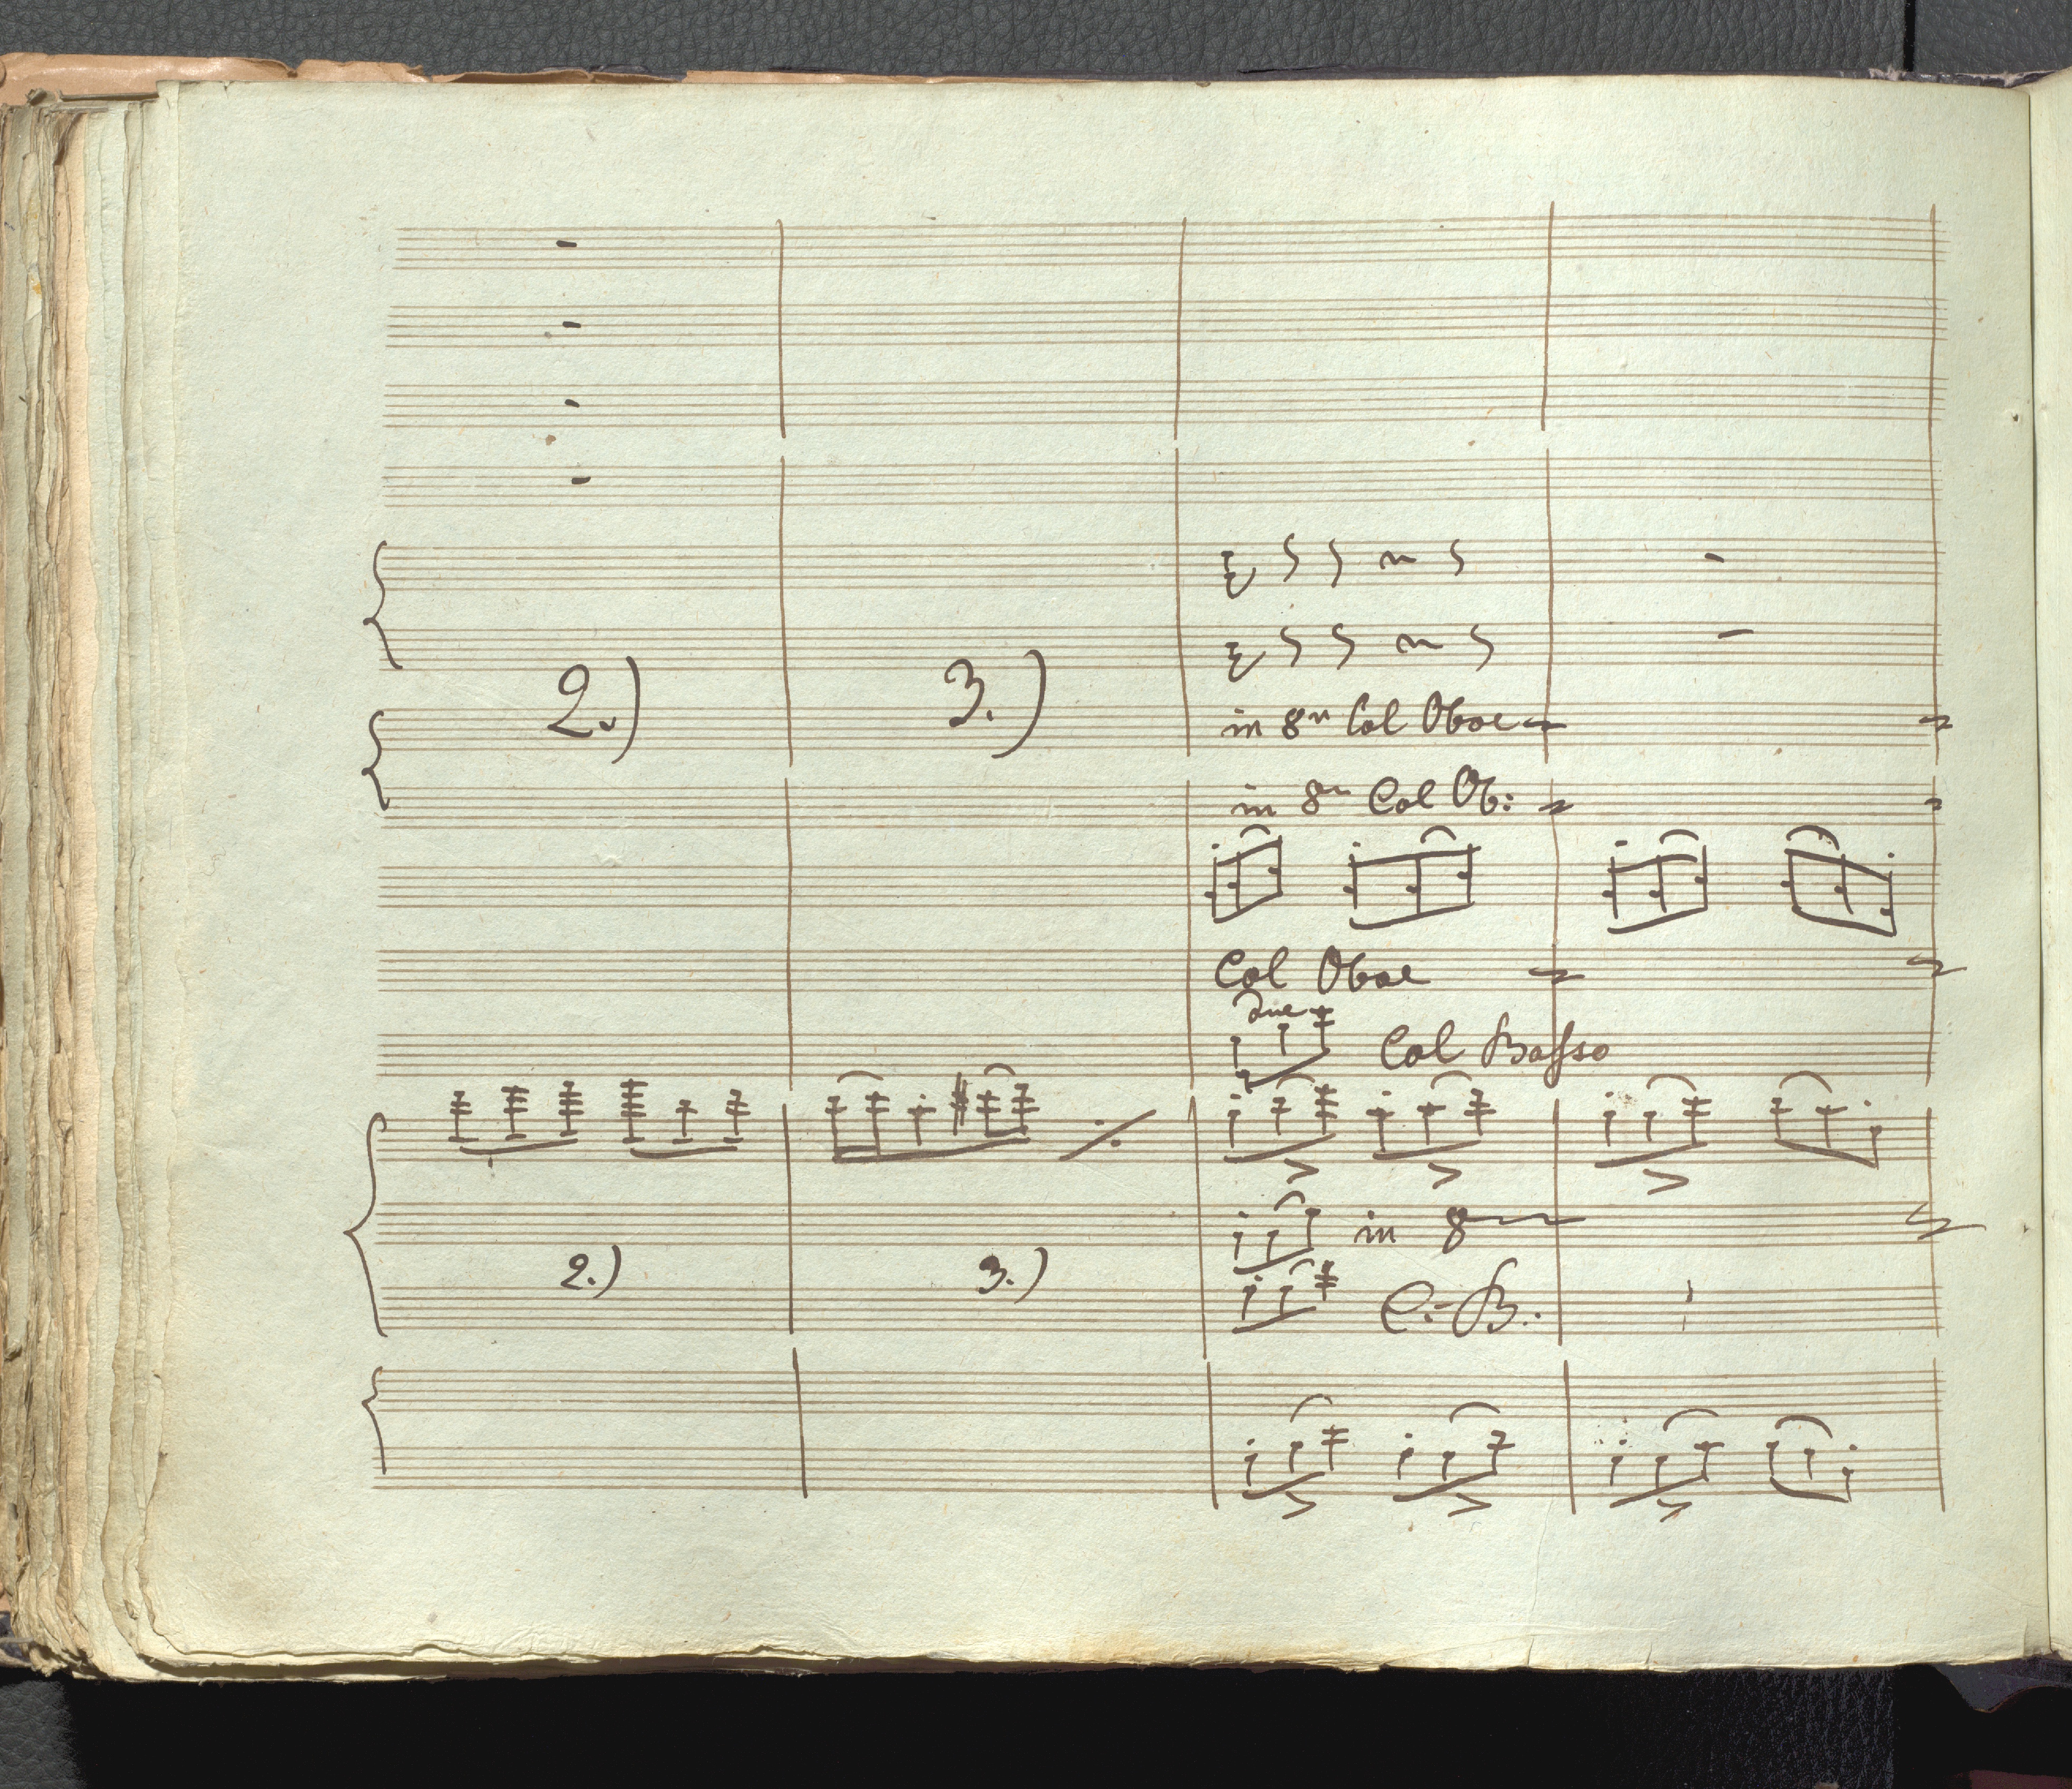 2.) 3.) in 8va Col Oboe
in 8va Col Ob:
Col Oboe
due
Col Basso
in 8
2.) 3.) C.B.